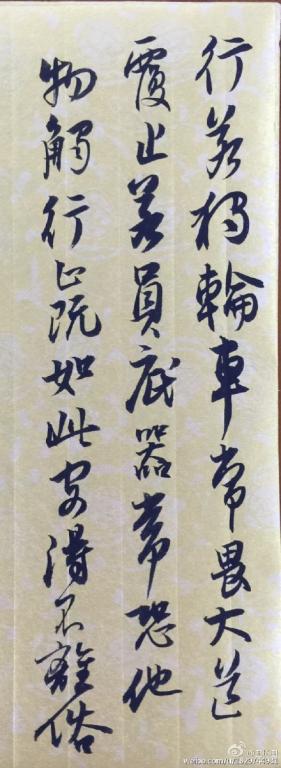 行若獨輪車常畏大道
覆止若員底器常恐他
物觸行止既如此安得不離俗